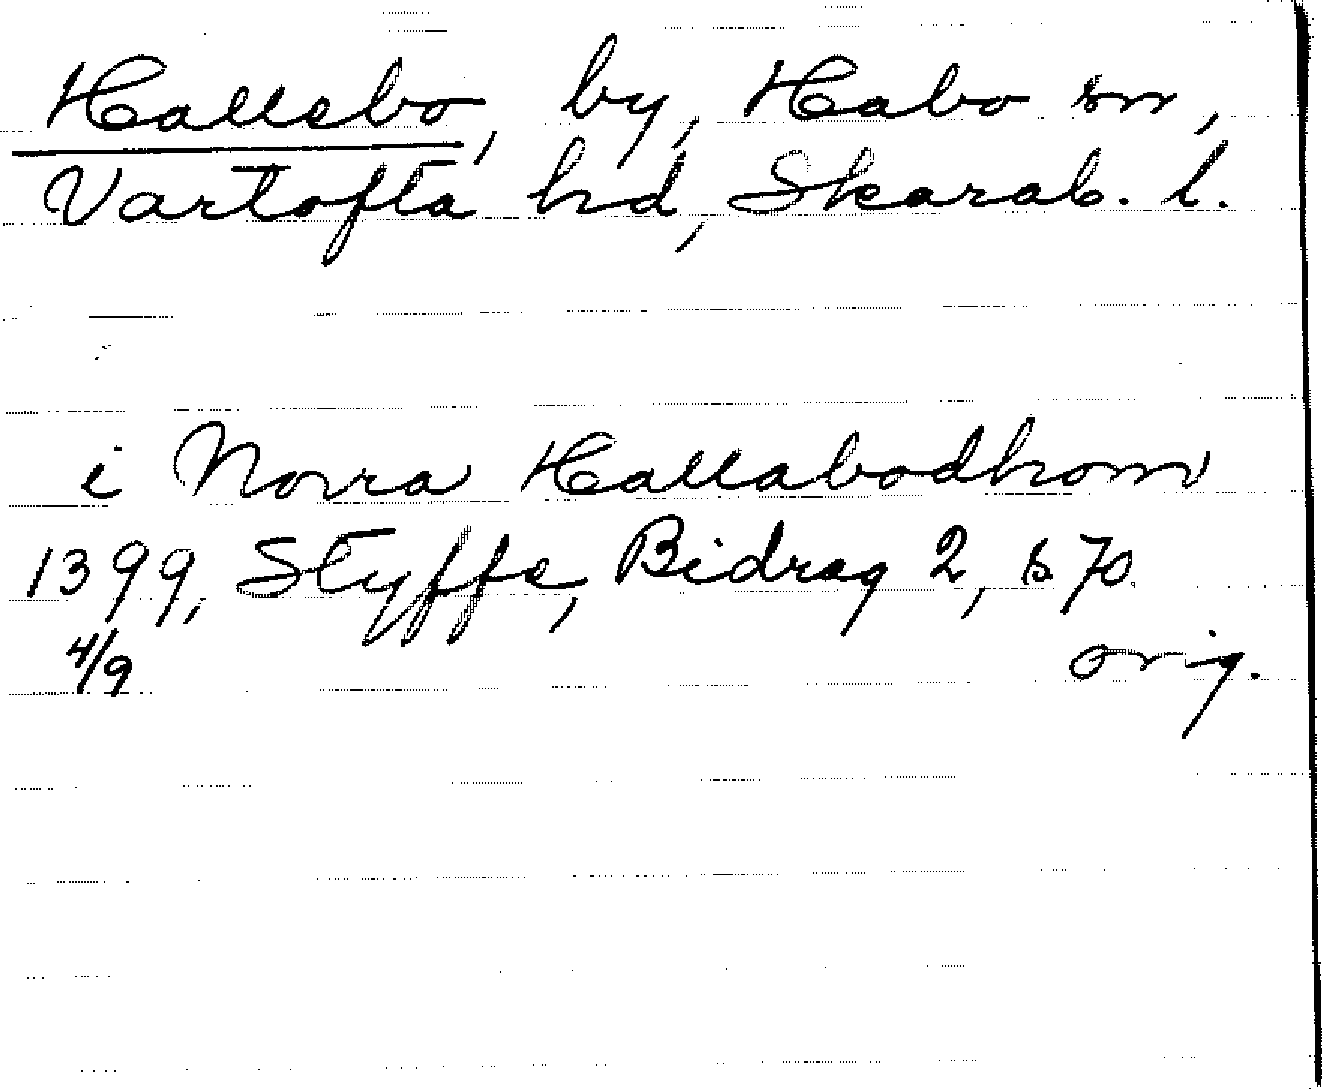 Hallebo, by, Habo sn,
Vartofta hd, Skarab. l.
i Norra Hallabodhom
1399, Styffe, Bidrag 2, s 70.
4/9 orig.